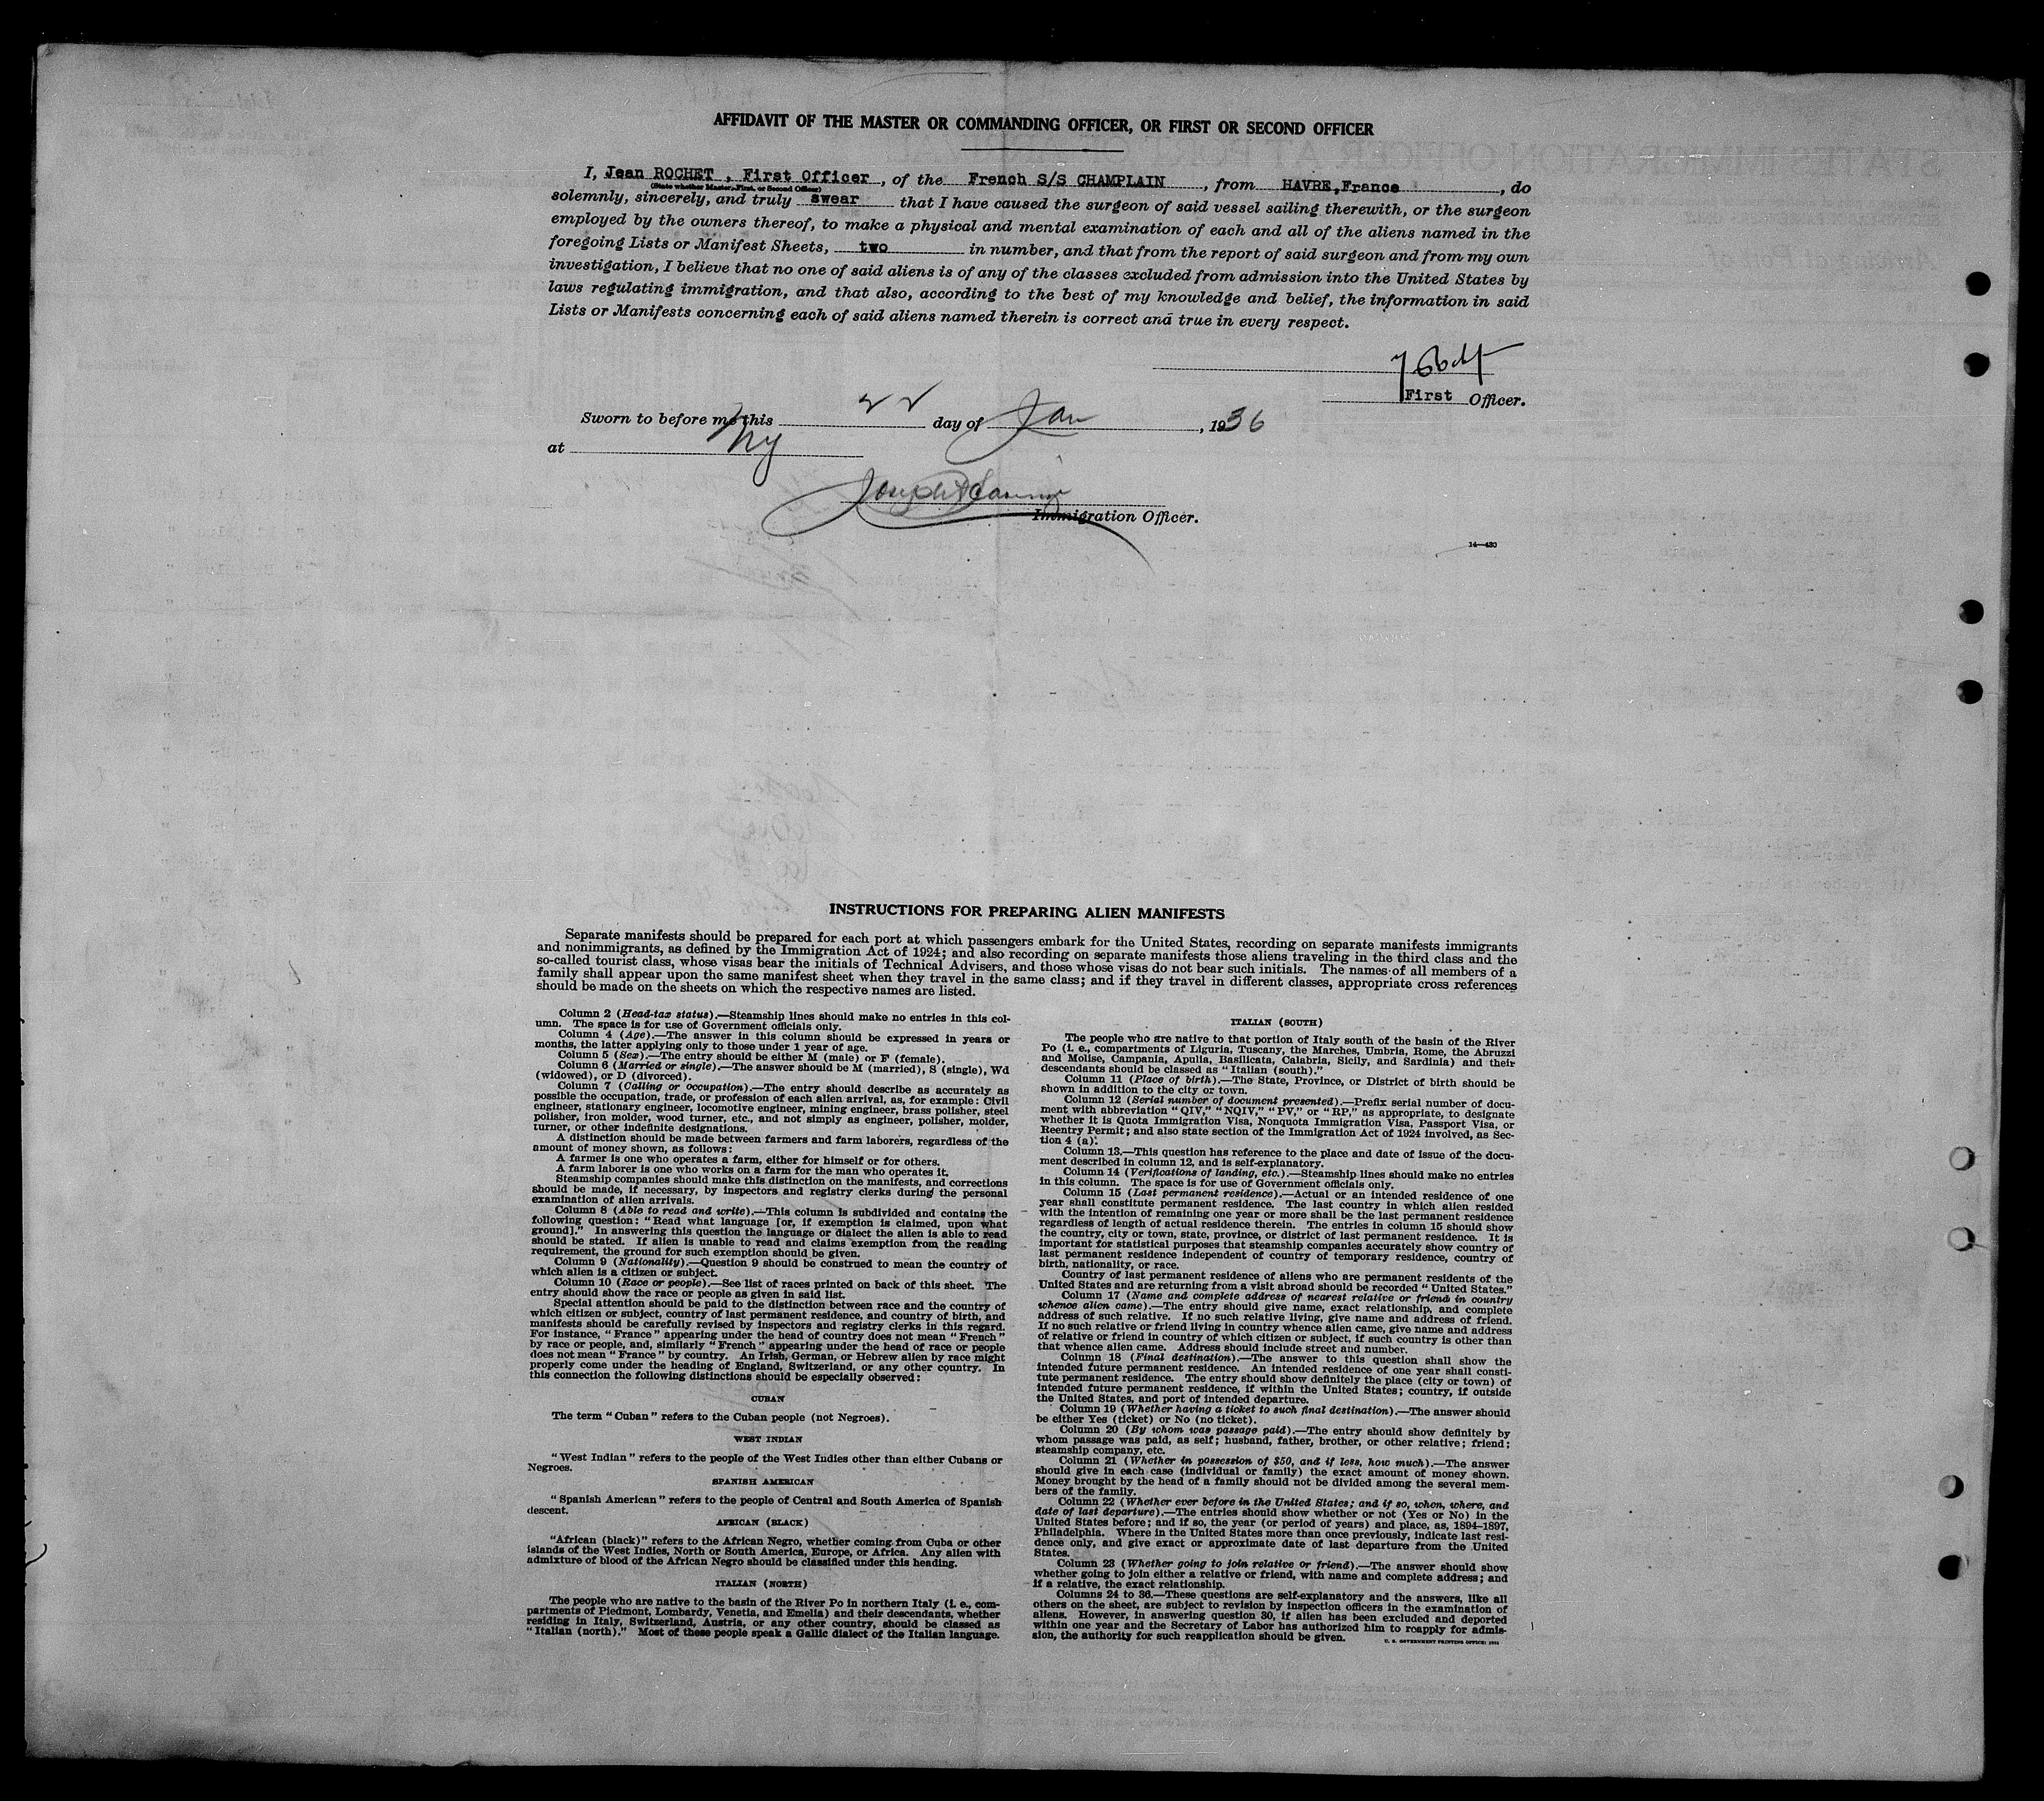 AFFIDAVIT OF THE MASTER OR COMMANDING OFFICER, OR FIRST OR SECOND OFFICER
I, Jean ROCHET , First Officer , of the French S/S CHAMPLAIN , from HAVRE, France , do
(State whether Master, First, or Second Officer)
solemnly, sincerely, and truly swear that I have caused the surgeon of said vessel sailing therewith, or the surgeon
employed by the owners thereof, to make a physical and mental examination of each and all of the aliens named in the
foregoing Lists or Manifest Sheets, two in number, and that from the report of said surgeon and from my own
investigation, I believe that no one of said aliens is of any of the classes excluded from admission into the United States by
laws regulating immigration, and that also, according to the best of my knowledge and belief, the information in said
Lists or Manifests concerning each of said aliens named therein is correct and true in every respect.
First Officer.
Sworn to before me this 22 day of Jan , 1936
at NY
Immigration Officer.
14—430
INSTRUCTIONS FOR PREPARING ALIEN MANIFESTS
Separate manifests should be prepared for each port at which passengers embark for the United States, recording on separate manifests immigrants
and nonimmigrants, as defined by the Immigration Act of 1924; and also recording on separate manifests those aliens traveling in the third class and the
so-called tourist class, whose visas bear the initials of Technical Advisers, and those whose visas do not bear such initials. The names of all members of a
family shall appear upon the same manifest sheet when they travel in the same class; and if they travel in different classes, appropriate cross references
should be made on the sheets on which the respective names are listed.
Column 2 (Head-tax status).—Steamship lines should make no entries in this col-
umn. The space is for use of Government officials only.
Column 4 (Age).—The answer in this column should be expressed in years or
months, the latter applying only to those under 1 year of age.
Column 5 (Sex).—The entry should be either M (male) or F (female).
Column 6 (Married or single).—The answer should be M (married), S (single), Wd
(widowed), or D (divorced).
Column 7 (Calling or occupation).—The entry should describe as accurately as
possible the occupation, trade, or profession of each alien arrival, as, for example: Civil
engineer, stationary engineer, locomotive engineer, mining engineer, brass polisher, steel
polisher, iron molder, wood turner, etc., and not simply as engineer, polisher, molder,
turner, or other indefinite designations.
A distinction should be made between farmers and farm laborers, regardless of the
amount of money shown, as follows:
A farmer is one who operates a farm, either for himself or for others.
A farm laborer is one who works on a farm for the man who operates it.
Steamship companies should make this distinction on the manifests, and corrections
should be made, if necessary, by inspectors and registry clerks during the personal
examination of alien arrivals.
Column 8 (Able to read and write).—This column is subdivided and contains the
following question: "Read what language [or, if exemption is claimed, upon what
ground]." In answering this question the language or dialect the alien is able to read
should be stated. If alien is unable to read and claims exemption from the reading
requirement, the ground for such exemption should be given.
Column 9 (Nationality).—Question 9 should be construed to mean the country of
which alien is a citizen or subject.
Column 10 (Race or people).—See list of races printed on back of this sheet. The
entry should show the race or people as given in said list.
Special attention should be paid to the distinction between race and the country of
which citizen or subject, country of last permanent residence, and country of birth, and
manifests should be carefully revised by inspectors and registry clerks in this regard.
For instance, "France" appearing under the head of country does not mean "French"
by race or people, and, similarly "French" appearing under the head of race or people
does not mean "France" by country. An Irish, German, or Hebrew alien by race might
properly come under the heading of England, Switzerland, or any other country. In
this connection the following distinctions should be especially observed:
CUBAN
The term "Cuban" refers to the Cuban people (not Negroes).
WEST INDIAN
"West Indian" refers to the people of the West Indies other than either Cubans or
Negroes.
SPANISH AMERICAN
"Spanish American" refers to the people of Central and South America of Spanish
descent.
AFRICAN (BLACK)
"African (black)" refers to the African Negro, whether coming from Cuba or other
islands of the West Indies, North or South America, Europe, or Africa. Any alien with
admixture of blood of the African Negro should be classified under this heading.
ITALIAN (NORTH)
The people who are native to the basin of the River Po in northern Italy (i. e., com-
partments of Piedmont, Lombardy, Venetia, and Emelia) and their descendants, whether
residing in Italy, Switzerland, Austria, or any other country, should be classed as
"Italian (north)." Most of these people speak a Gallic dialect of the Italian language.
ITALIAN (SOUTH)
The people who are native to that portion of Italy south of the basin of the River
Po (i. e., compartments of Liguria, Tuscany, the Marches, Umbria, Rome, the Abruzzi
and Molise, Campania, Apulia, Basilicata, Calabria, Sicily, and Sardinia) and their
descendants should be classed as "Italian (south)."
Column 11 (Place of birth).—The State, Province, or District of birth should be
shown in addition to the city or town.
Column 12 (Serial number of document presented).—Prefix serial number of docu-
ment with abbreviation "QIV," "NQIV," "PV," or "RP," as appropriate, to designate
whether it is Quota Immigration Visa, Nonquota Immigration Visa, Passport Visa, or
Reentry Permit; and also state section of the Immigration Act of 1924 involved, as Sec-
tion 4 (a).
Column 13.—This question has reference to the place and date of issue of the docu-
ment described in column 12, and is self-explanatory.
Column 14 (Verifications of landing, etc.).—Steamship lines should make no entries
in this column. The space is for use of Government officials only.
Column 15 (Last permanent residence).—Actual or an intended residence of one
year shall constitute permanent residence. The last country in which alien resided
with the intention of remaining one year or more shall be the last permanent residence
regardless of length of actual residence therein. The entries in column 15 should show
the country, city or town, state, province, or district of last permanent residence. It is
important for statistical purposes that steamship companies accurately show country of
last permanent residence independent of country of temporary residence, country of
birth, nationality, or race.
Country of last permanent residence of aliens who are permanent residents of the
United States and are returning from a visit abroad should be recorded "United States."
Column 17 (Name and complete address of nearest relative or friend in country
whence alien came).—The entry should give name, exact relationship, and complete
address of such relative. If no such relative living, give name and address of friend.
If no such relative or friend living in country whence alien came, give name and address
of relative or friend in country of which citizen or subject, if such country is other than
that whence alien came. Address should include street and number.
Column 18 (Final destination).—The answer to this question shall show the
intended future permanent residence. An intended residence of one year shall consti-
tute permanent residence. The entry should show definitely the place (city or town) of
intended future permanent residence, if within the United States; country, if outside
the United States, and port of intended departure.
Column 19 (Whether having a ticket to such final destination).—The answer should
be either Yes (ticket) or No (no ticket).
Column 20 (By whom was passage paid).—The entry should show definitely by
whom passage was paid, as self; husband, father, brother, or other relative; friend;
steamship company, etc.
Column 21 (Whether in possession of $50, and if less, how much).—The answer
should give in each case (individual or family) the exact amount of money shown.
Money brought by the head of a family should not be divided among the several mem-
bers of the family.
Column 22 (Whether ever before in the United States; and if so, when, where, and
date of last departure).—The entries should show whether or not (Yes or No) in the
United States before; and if so, the year (or period of years) and place, as, 1894–1897,
Philadelphia. Where in the United States more than once previously, indicate last resi-
dence only, and give exact or approximate date of last departure from the United
States.
Column 23 (Whether going to join relative or friend).—The answer should show
whether going to join either a relative or friend, with name and complete address; and
if a relative, the exact relationship.
Columns 24 to 36.—These questions are self-explanatory and the answers, like all
others on the sheet, are subject to revision by inspection officers in the examination of
aliens. However, in answering question 30, if alien has been excluded and deported
within one year and the Secretary of Labor has authorized him to reapply for admis-
sion, the authority for such reapplication should be given.
U. S. GOVERNMENT PRINTING OFFICE: